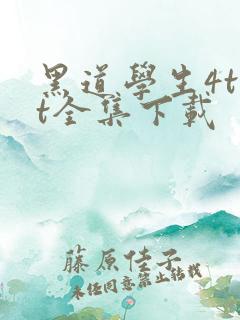 黑道學生4t
t全集下載
藤原佳子
未經同意禁止轉載